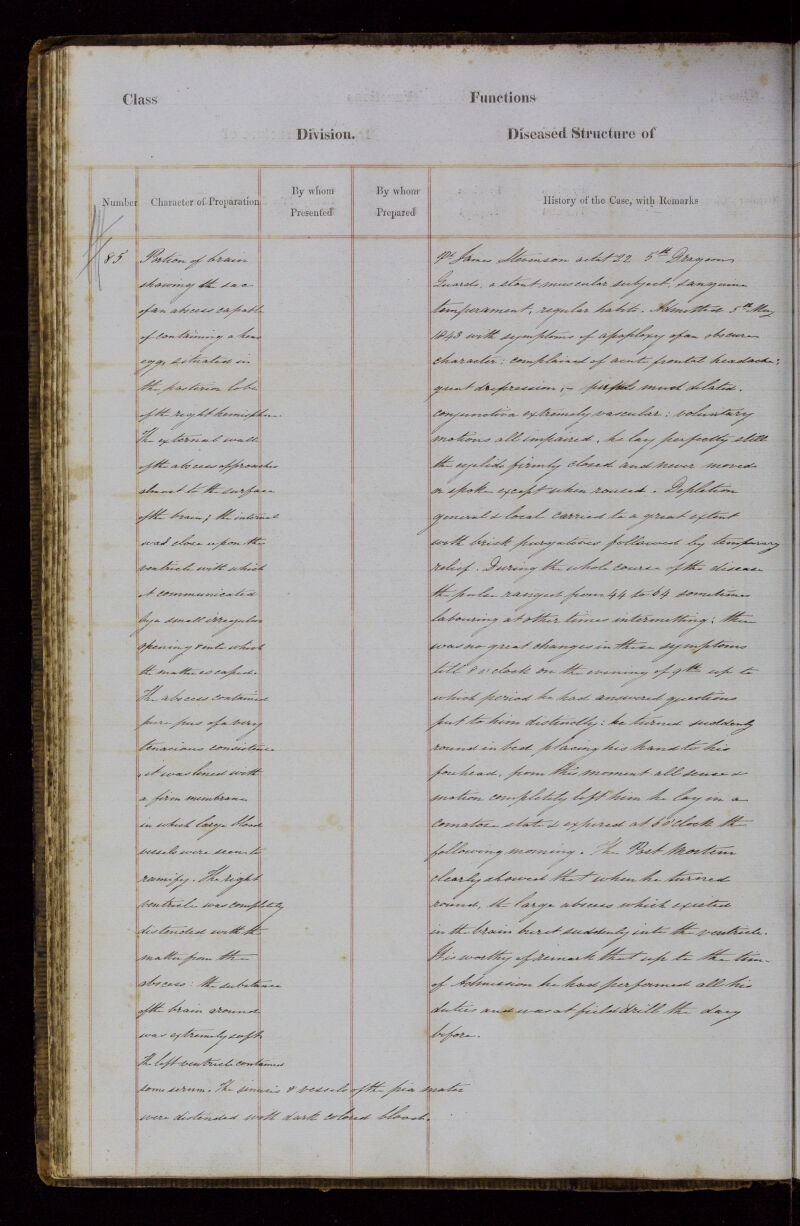 Class Functions
Division. Diseased Structure of
Number Character of Preparation By whom Presented By whom Prepared History of the Case, with Remarks
85
Portion of brain
showing the sac
of an abscess capable
of containing a hens
egg, situated in
the posterior lobe
of the right hemisphere.
The external wall
of the abscess approaches
almost to the surface
of the brain; the internal
was close upon the
ventricle with which
it communicated
by a small irregular
opening & into which
the matter escaped.
The abscess contained
pure pus of a very
tenacious consistence
, it was lined with
a firm membrane
in which large blood
vessels were seen to
ramify. The right
ventricle was completely
distended with the
matter from the
abscess: the substance
of the brain around
was extremely soft.
The left ventricle contained
some serum. The sinuses & vessels of the pia mater
were distended with dark colored blood.
Pt. James Stevenson aetat 22 5th Dragoon
Guards, a stout muscular subject, sanguine
temperament, regular habits. Admitted 5th May
1843 with symptoms of apoplexy of an obscure
character: complained of acute frontal headache;
great depression; - pupils much dilated.
conjunctiva extremely vascular: voluntary
motions all impaired, he lay perfectly still
the eyelids firmly closed and never moved
or spoke except when roused. Depletion
general & local carried to a great extent
with brisk purgatives followed by temporary
relief. During the whole course of the disease
the pulse ranged from 44 to 64 sometimes
labouring at other times intermitting: there
was no great changes in these symptoms
till 8 o'clock on the evening of 9th up to
which period he had answered questions
put to him distinctly: he turned suddenly
round in bed placing his hand to his
forehead, from this moment all sense &
motion completely left him he lay in a
comatose state & expired at 6 o'clock the
following morning. The Post Mortem
clearly showed that when he turned
round, the large abscess which existed
in the brain burst suddenly into the ventricle.
It is worthy of remark that up to the time
of Admission he had performed all his
duties and was at field drill the day
before.